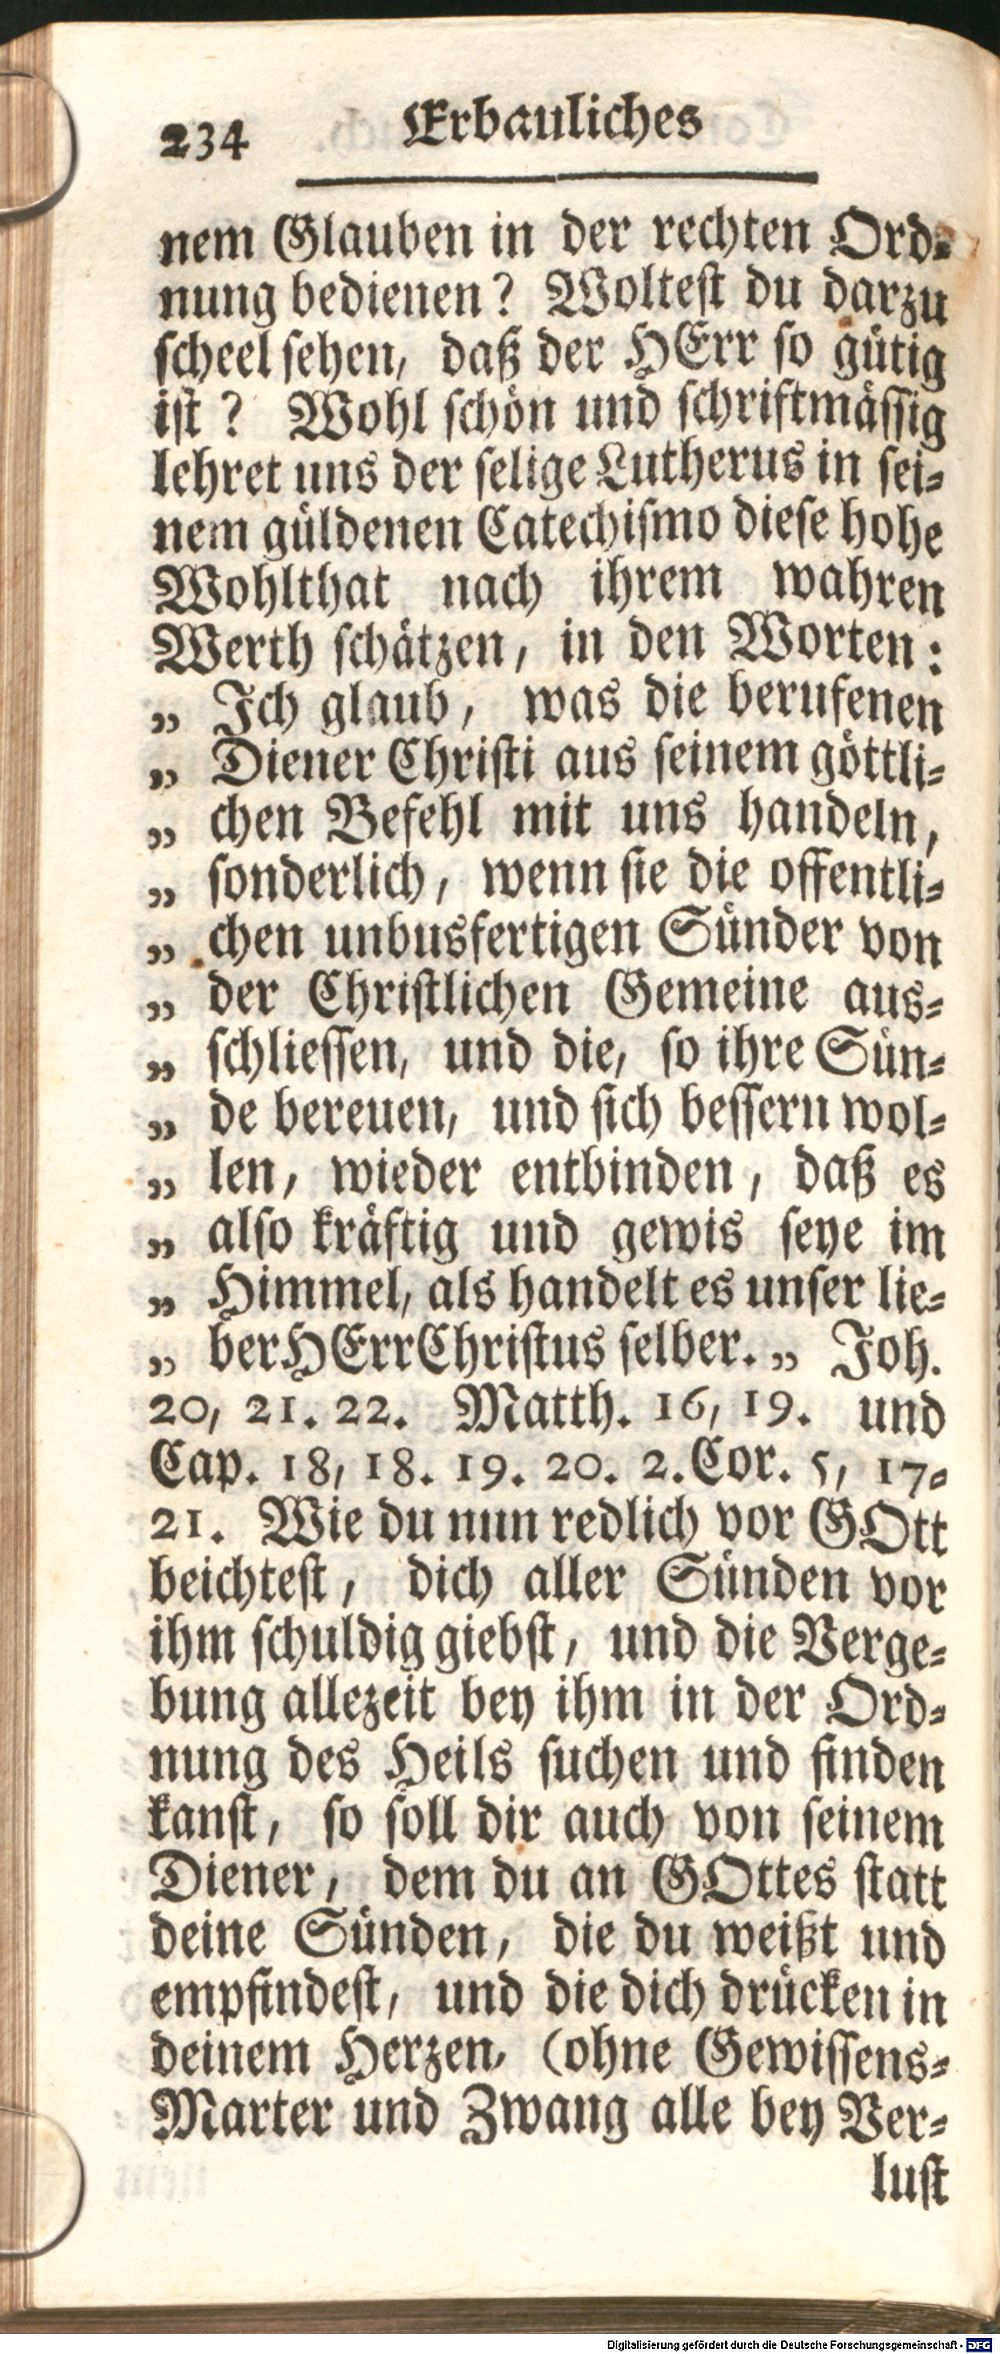 234 Erbauliches
nem Glauben in der rechten Ord-
nung bedienen? Woltest du darzu
scheel sehen, daß der HErr so gütig
ist? Wohl schön und schriftmässig
lehret uns der selige Lutherus in sei-
nem güldenen Catechismo diese hohe
Wohlthat nach ihrem wahren
Werth schätzen, in den Worten:
„ Ich glaub, was die berufenen
„ Diener Christi aus seinem göttli-
„ chen Befehl mit uns handeln,
„ sonderlich, wenn sie die offentli-
„ chen unbusfertigen Sünder von
„ der Christlichen Gemeine aus-
„ schliessen, und die, so ihre Sün-
„ de bereuen, und sich bessern wol-
„ len, wieder entbinden, daß es
„ also kräftig und gewis seye im
„ Himmel, als handelt es unser lie-
„ ber HErr Christus selber. „ Joh.
20, 21. 22. Matth. 16, 19. und
Cap. 18, 18. 19. 20. 2. Cor. 5, 17-
21. Wie du nun redlich vor GOtt
beichtest, dich aller Sünden vor
ihm schuldig giebst, und die Verge-
bung allezeit bey ihm in der Ord-
nung des Heils suchen und finden
kanst, so soll dir auch von seinem
Diener, dem du an GOttes statt
deine Sünden, die du weißt und
empfindest, und die dich drücken in
deinem Herzen, (ohne Gewissens-
Marter und Zwang alle bey Ver-
lust
Digitalisierung gefördert durch die Deutsche Forschungsgemeinschaft - DFG